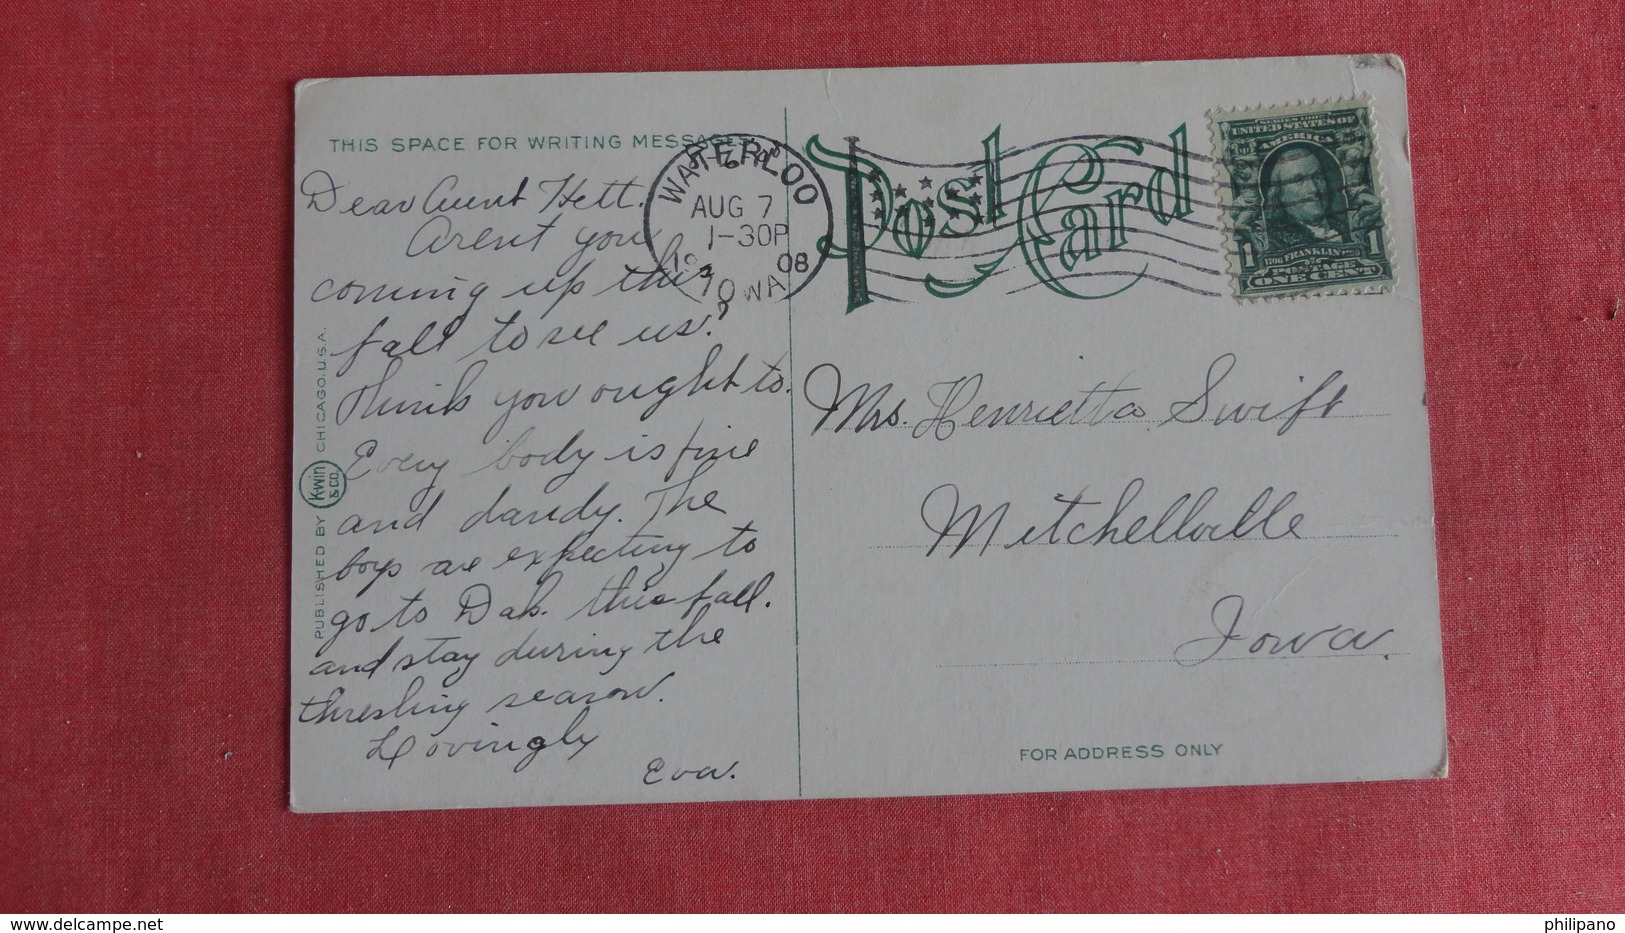 THIS SPACE FOR WRITING MESSAGES
Dear Aunt Hett.
Arent you
coming up this
fall to see us?
Think you ought to.
Every body is fine
and dandy. The
boys are expecting to
go to Dak. this fall.
and stay during the
threshing season.
Lovingly
Eva.
PUBLISHED BY Kwin & CO. CHICAGO. U.S.A.
WATERLOO
AUG 7
1-30P
08
IOWA
Post Card
SERIES 1902
UNITED STATES OF
AMERICA
1706 FRANKLIN 1790
1 1
POSTAGE
ONE CENT
Mrs. Henrietta Swift
Mitchellville
Iowa.
FOR ADDRESS ONLY
www.delcampe.net
philipano